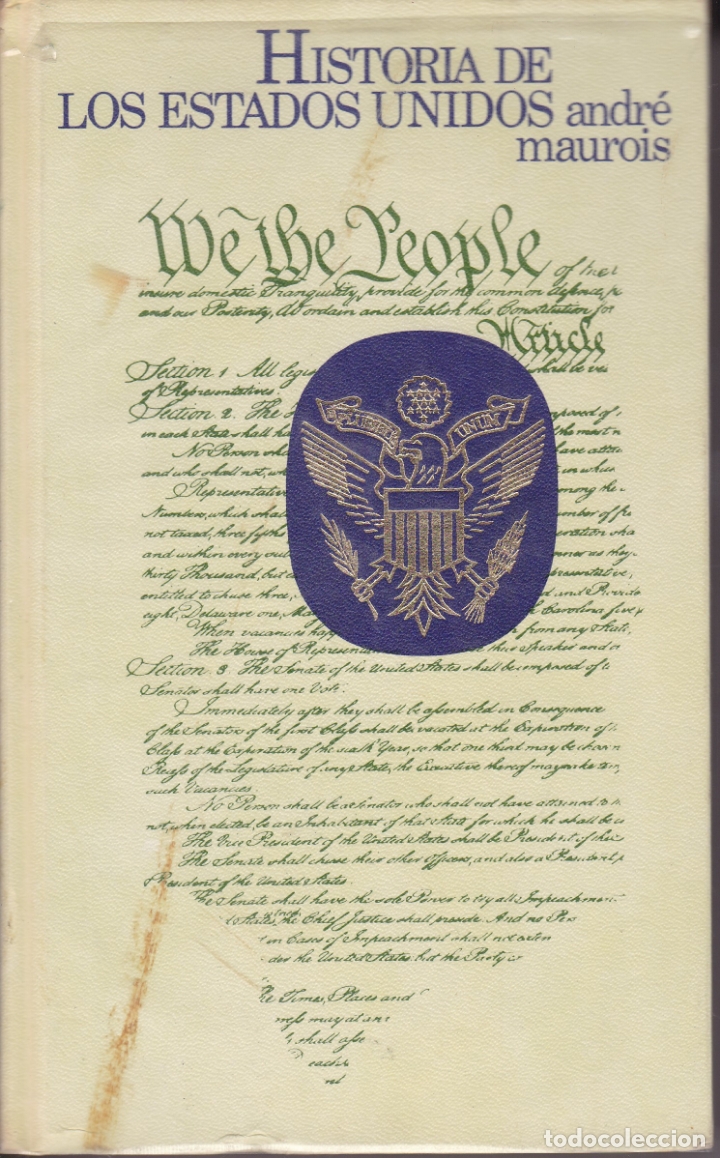 HISTORIA DE
LOS ESTADOS UNIDOS andré
maurois
We the People of the
insure domestic Tranquility, provide for the common defence,
and our Posterity, do ordain and establish this Constitution for
Article
Section 1 All legis shall be ves
of Representatives.
Section 2. The H mposed of
in each State shall ha the most n
No Person sha have attain
and who shall not, w in whic
Representativ among the
Number, which shal number of fre
not taxed, three fifths eration sha
and within every su manner as they
thirty Thousand, but e presentative,
entitled to chuse three, d and Provide
eight, Delaware one, Ma Carolina five
When vacancies happ from any State,
The House of Represen e their Speaker and o
Section 3 The Senate of the United States shall be composed of t
Senator shall have one Vote.
Immediately after they shall be assembled in Consequence
of the Senators of the first Class shall be vacated at the Expiration of t
Class at the Expiration of the sixth Year, so that one third may be chosen
Recess of the Legislature of any State, the Executive thereof may make tem
such Vacancies
No Person shall be a Senator who shall not have attained to
not, when elected, be an Inhabitant of that State for which he shall be c
The Vice President of the United States shall be President of the
The Senate shall chuse their other Officers, and also a President p
President of the United States.
The Senate shall have the sole Power to try all Impeachment
States, the Chief Justice shall preside. And no Per
in Cases of Impeachment shall not exten
der the United States but the Party c
he Times, Places and
ngress may at an
shall asse
each
E PLURIBUS UNUM
todocoleccion